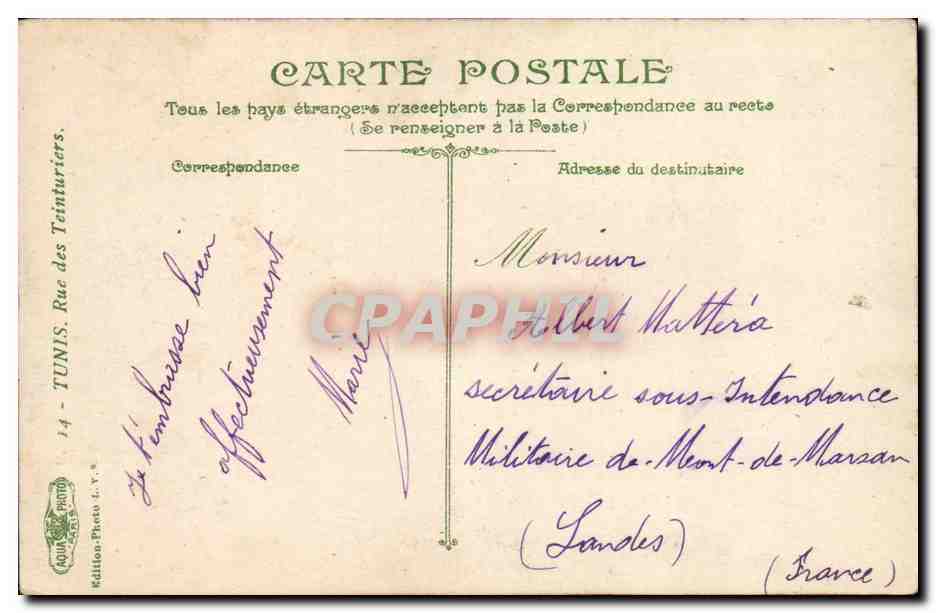 CARTE POSTALE
Tous les pays étrangers n'acceptent pas la Correspondance au recto
(Se renseigner à la Poste)
Correspondance
Adresse du destinataire
14 - TUNIS. Rue des Teinturiers.
AQUA PHOTO
PARIS
Edition-Photo L. V. &
Je t'embrasse bien
affectueusement
Marie
Monsieur
Albert Mattéra
secrétaire sous-Intendance
Militaire de-Mont-de-Marsan
(Landes)
(France)
CPAPHIL.COM